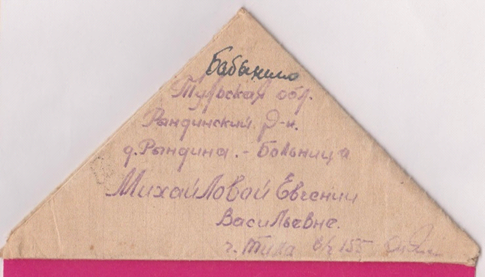 Бабынино
Тульская обл.
Рандинский р-н.
д. Рындина. - Больница
Михайловой Евгении
Васильевне.
г. Тула